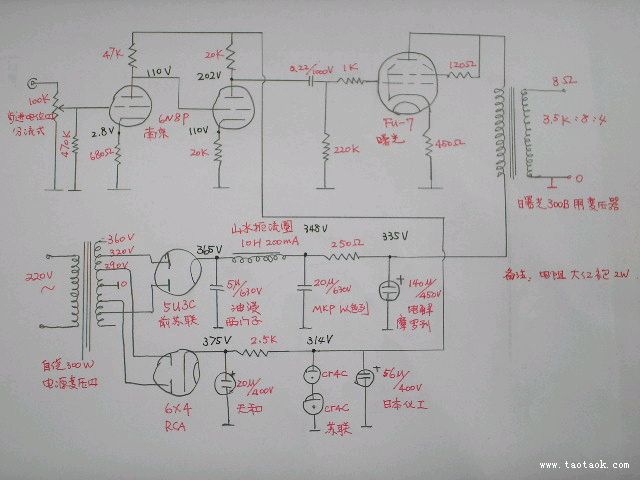 47K
20K
110V
202V
0.22/1000V
1K
120Ω
100K
分流式
470K
2.8V
680Ω
6N8P
南京
110V
20K
220K
FU-7
曙光
450Ω
8Ω
3.5K:8:4
0
曙光300B用变压器
360V
320V
290V
0
220V
~
5U3C
前苏联
365V
10H 200mA
348V
250Ω
335V
5μ/630V
油浸
西门子
20μ/630V
MKP
140μ/450V
电解
备注,电阻大红袍2W.
自绕300W
电源变压器
6X4
RCA
375V
2.5K
314V
20μ/400V
CF4C
CF4C
苏联
56μ/400V
日本化工
www.taotaok.com